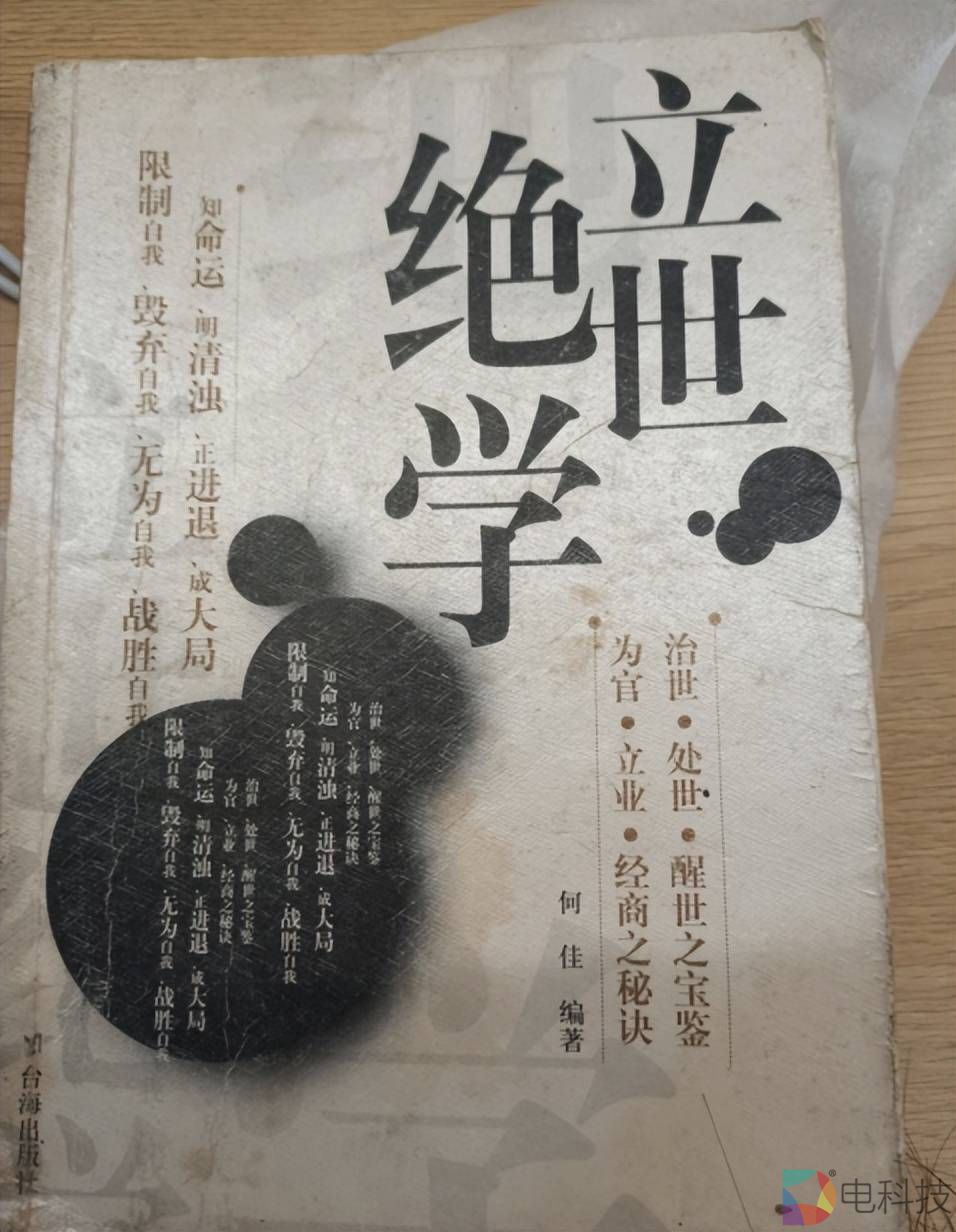 立世
绝学
治世·处世·醒世之宝鉴
为官·立业·经商之秘诀
何佳 编著
知命运、明清浊、正进退、成大局
限制自我、毁弃自我、无为自我、战胜自我
治世 处世 醒世之宝鉴
为官 立业 经商之秘诀
知命运、明清浊、正进退、成大局
限制自我、毁弃自我、无为自我、战胜自我
治世 处世 醒世之宝鉴
为官 立业 经商之秘诀
知命运、明清浊、正进退、成大局
限制自我、毁弃自我、无为自我、战胜自我
台海出版社
电科技